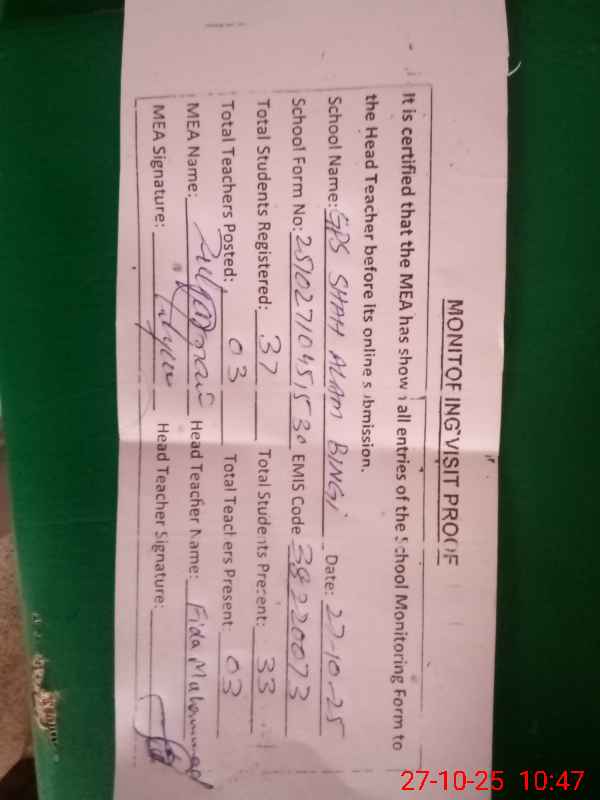 MONITORING VISIT PROOF
It is certified that the MEA has shown all entries of the School Monitoring Form to
the Head Teacher before its online submission.
School Name: GPS SHAH ALAM BINGi Date: 27-10-25
School Form No: EMIS Code 38220073
Total Students Registered: 37 Total Students Present: 33
Total Teachers Posted: 03 Total Teachers Present 03
MEA Name: Head Teacher Name: Fida Muhammad
MEA Signature: Head Teacher Signature:
27-10-25 10:47